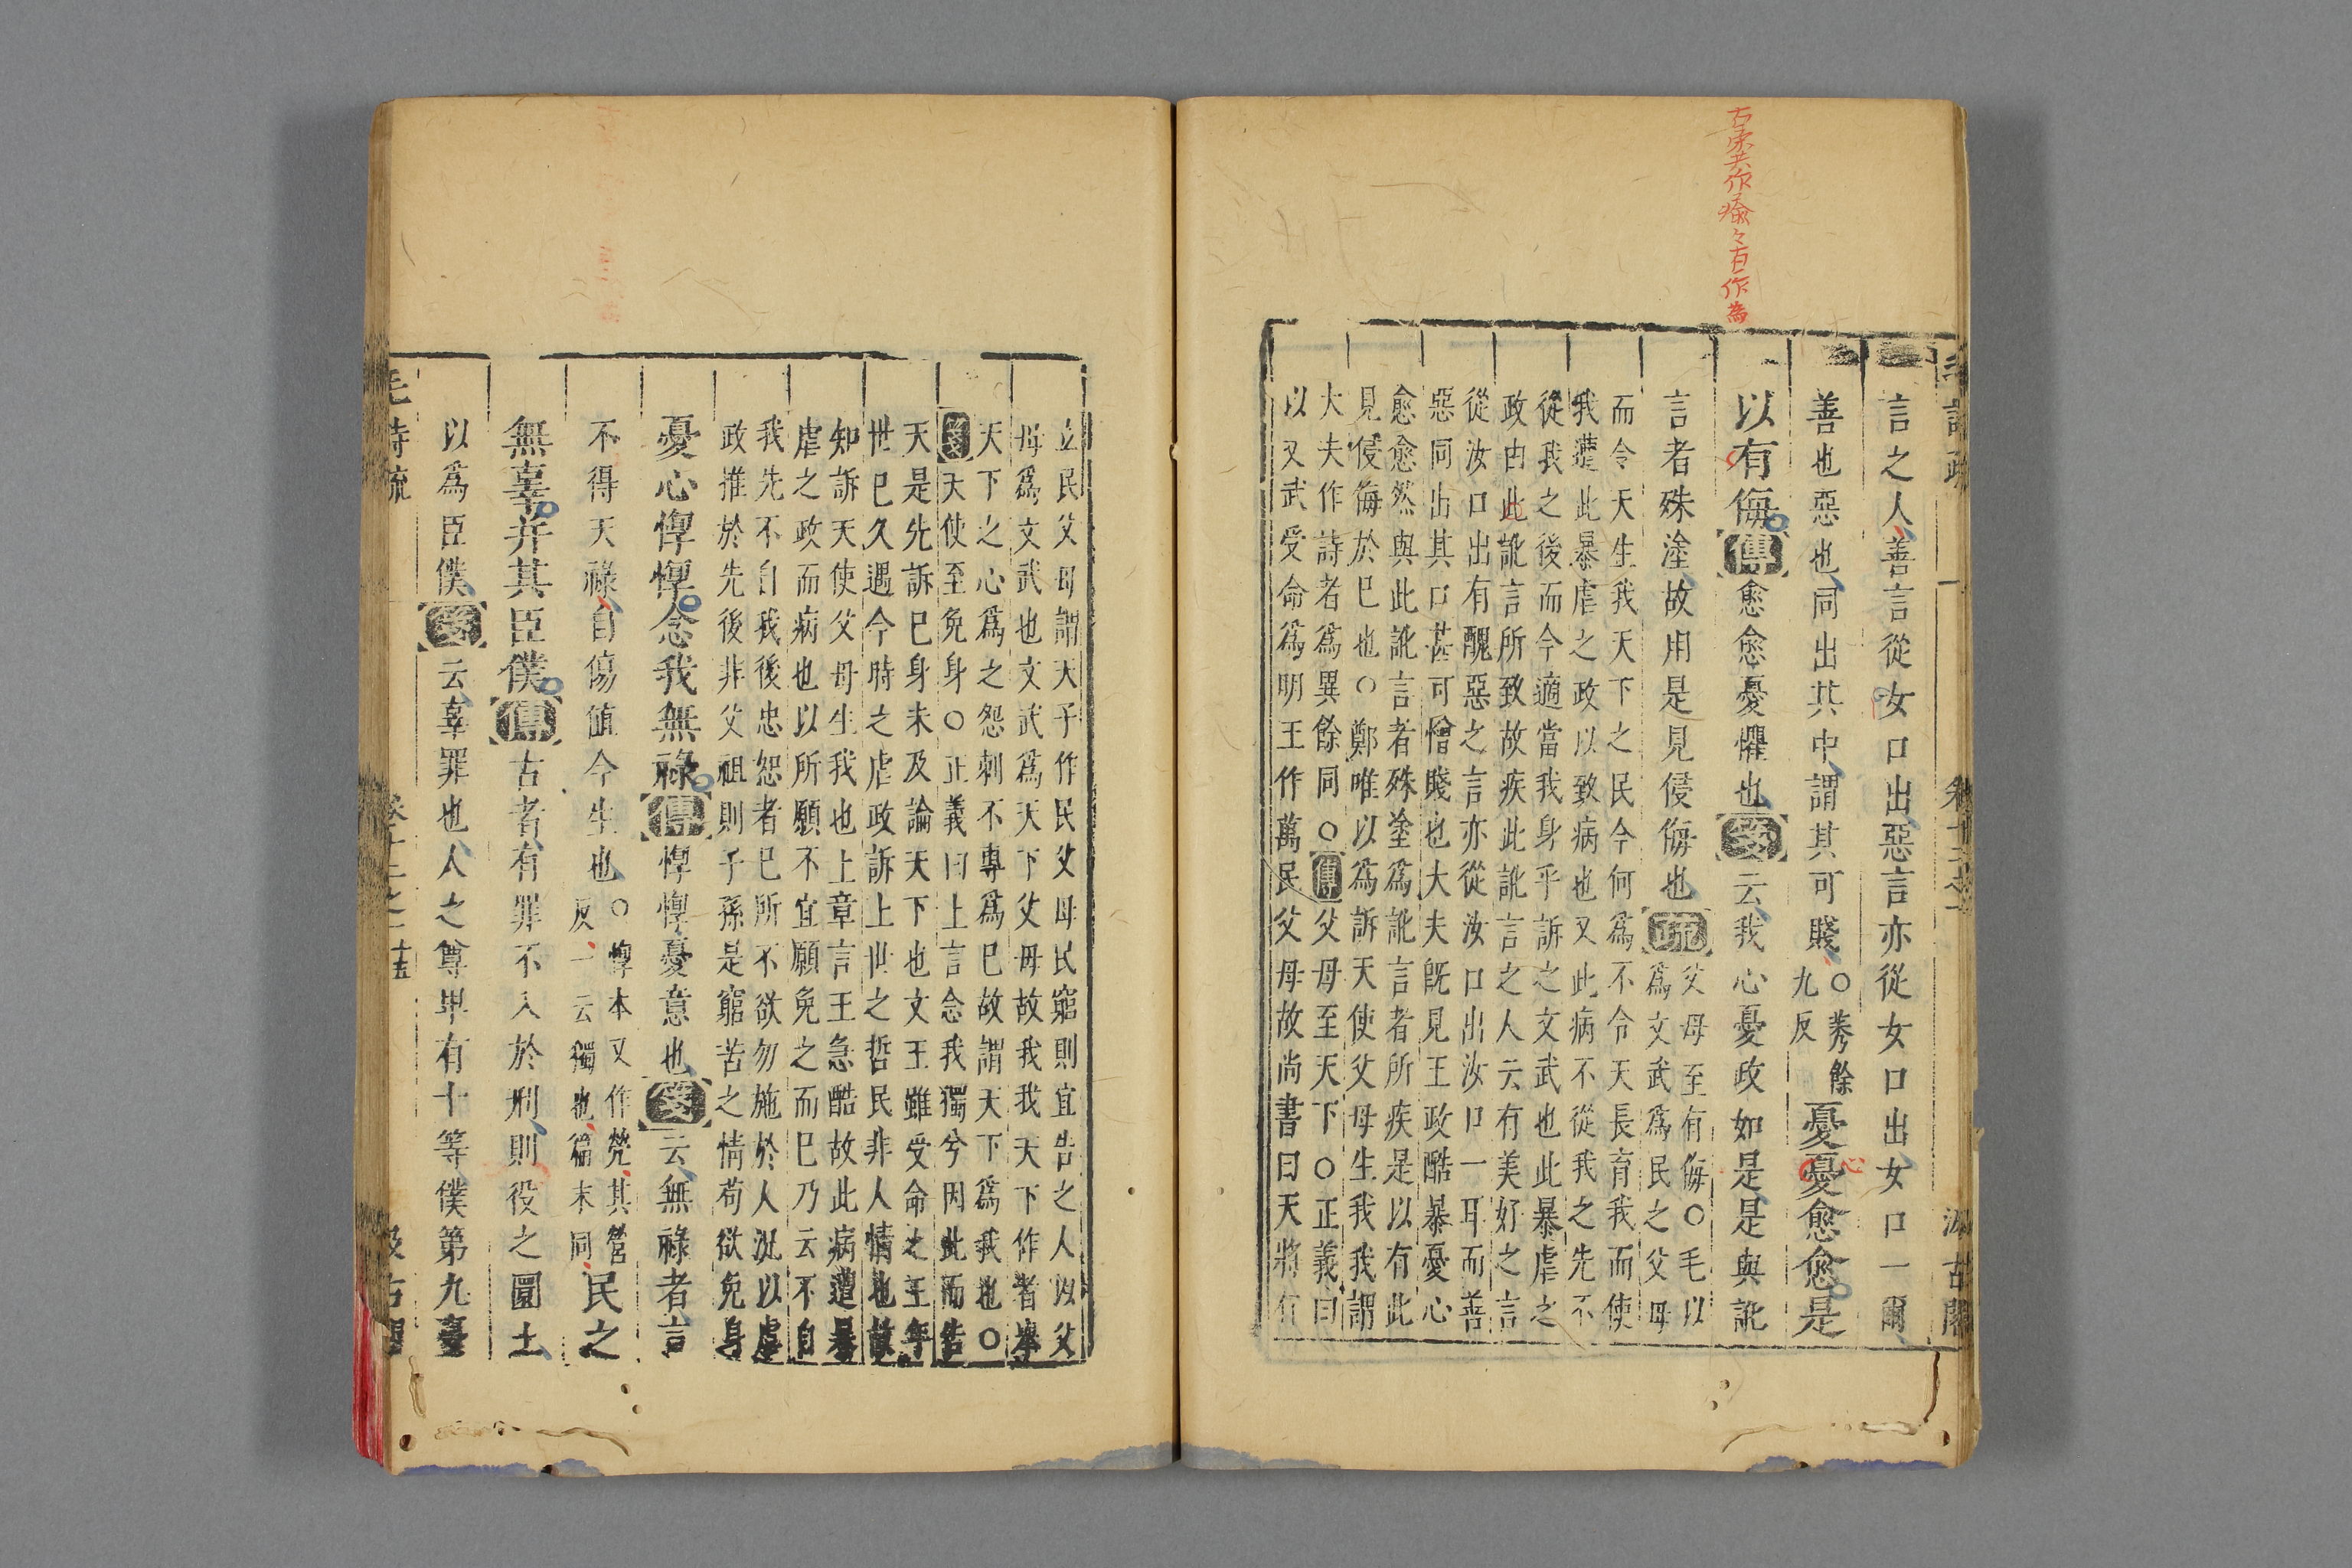 言之人善言從女口出惡言亦從女口出女口一爾
善也惡也同出其中謂其可賤○莠餘九反憂憂愈愈是
以有侮傳愈愈憂懼也箋云我心憂政如是是與訛
言者殊塗故用是見侵侮也疏父母至有侮○毛以
爲文武爲民之父母
而令天生我天下之民今何爲不令天長育我而使
我遭此暴虐之政以致病也又此病不從我之先不
從我之後而今適當我身乎訴之文武也此暴虐之
政由此訛言所致故疾此訛言之人云有美好之言
從汝口出有醜惡之言亦從汝口出汝口一耳而善
惡同出其口甚可憎賤也大夫旣見王政酷暴憂心
愈愈然與此訛言者殊塗爲訛言者所疾是以有此
見侵侮於巳也○鄭唯以爲訴天使父母生我我謂
大夫作詩者爲異餘同○傳父母至天下○正義曰
以文武受命爲明王作萬民父母故尚書曰天將有
立民父母謂天子作民父母民窮則宜告之人以父
母爲文武也文武爲天下父母故我我天下作者舉
天下之心爲之怨刺不專爲巳故謂天下爲我也○
箋天使至免身○正義曰上言念我獨兮因此而告
天是先訴巳身未及論天下也文王雖受命之王年
世巳久遇今時之虐政訴上世之哲民非人情也故
知訴天使父母生我也上章言王急酷故此病遭暴
虐之政而病也以所願不宜願免之而巳乃云不自
我先不自我後忠恕者巳所不欲勿施於人況以虐
政推於先後非父祖則子孫是窮苦之情苟欲免身
憂心惸惸念我無祿傳惸惸憂意也箋云無祿者言
不得天祿自傷值今生也○惸本又作煢其營反一云獨也篇末同民之
無辜并其臣僕傳古者有罪不入於刑則役之圜土
以爲臣僕箋云辜罪也人之尊卑有十等僕第九臺
毛詩疏